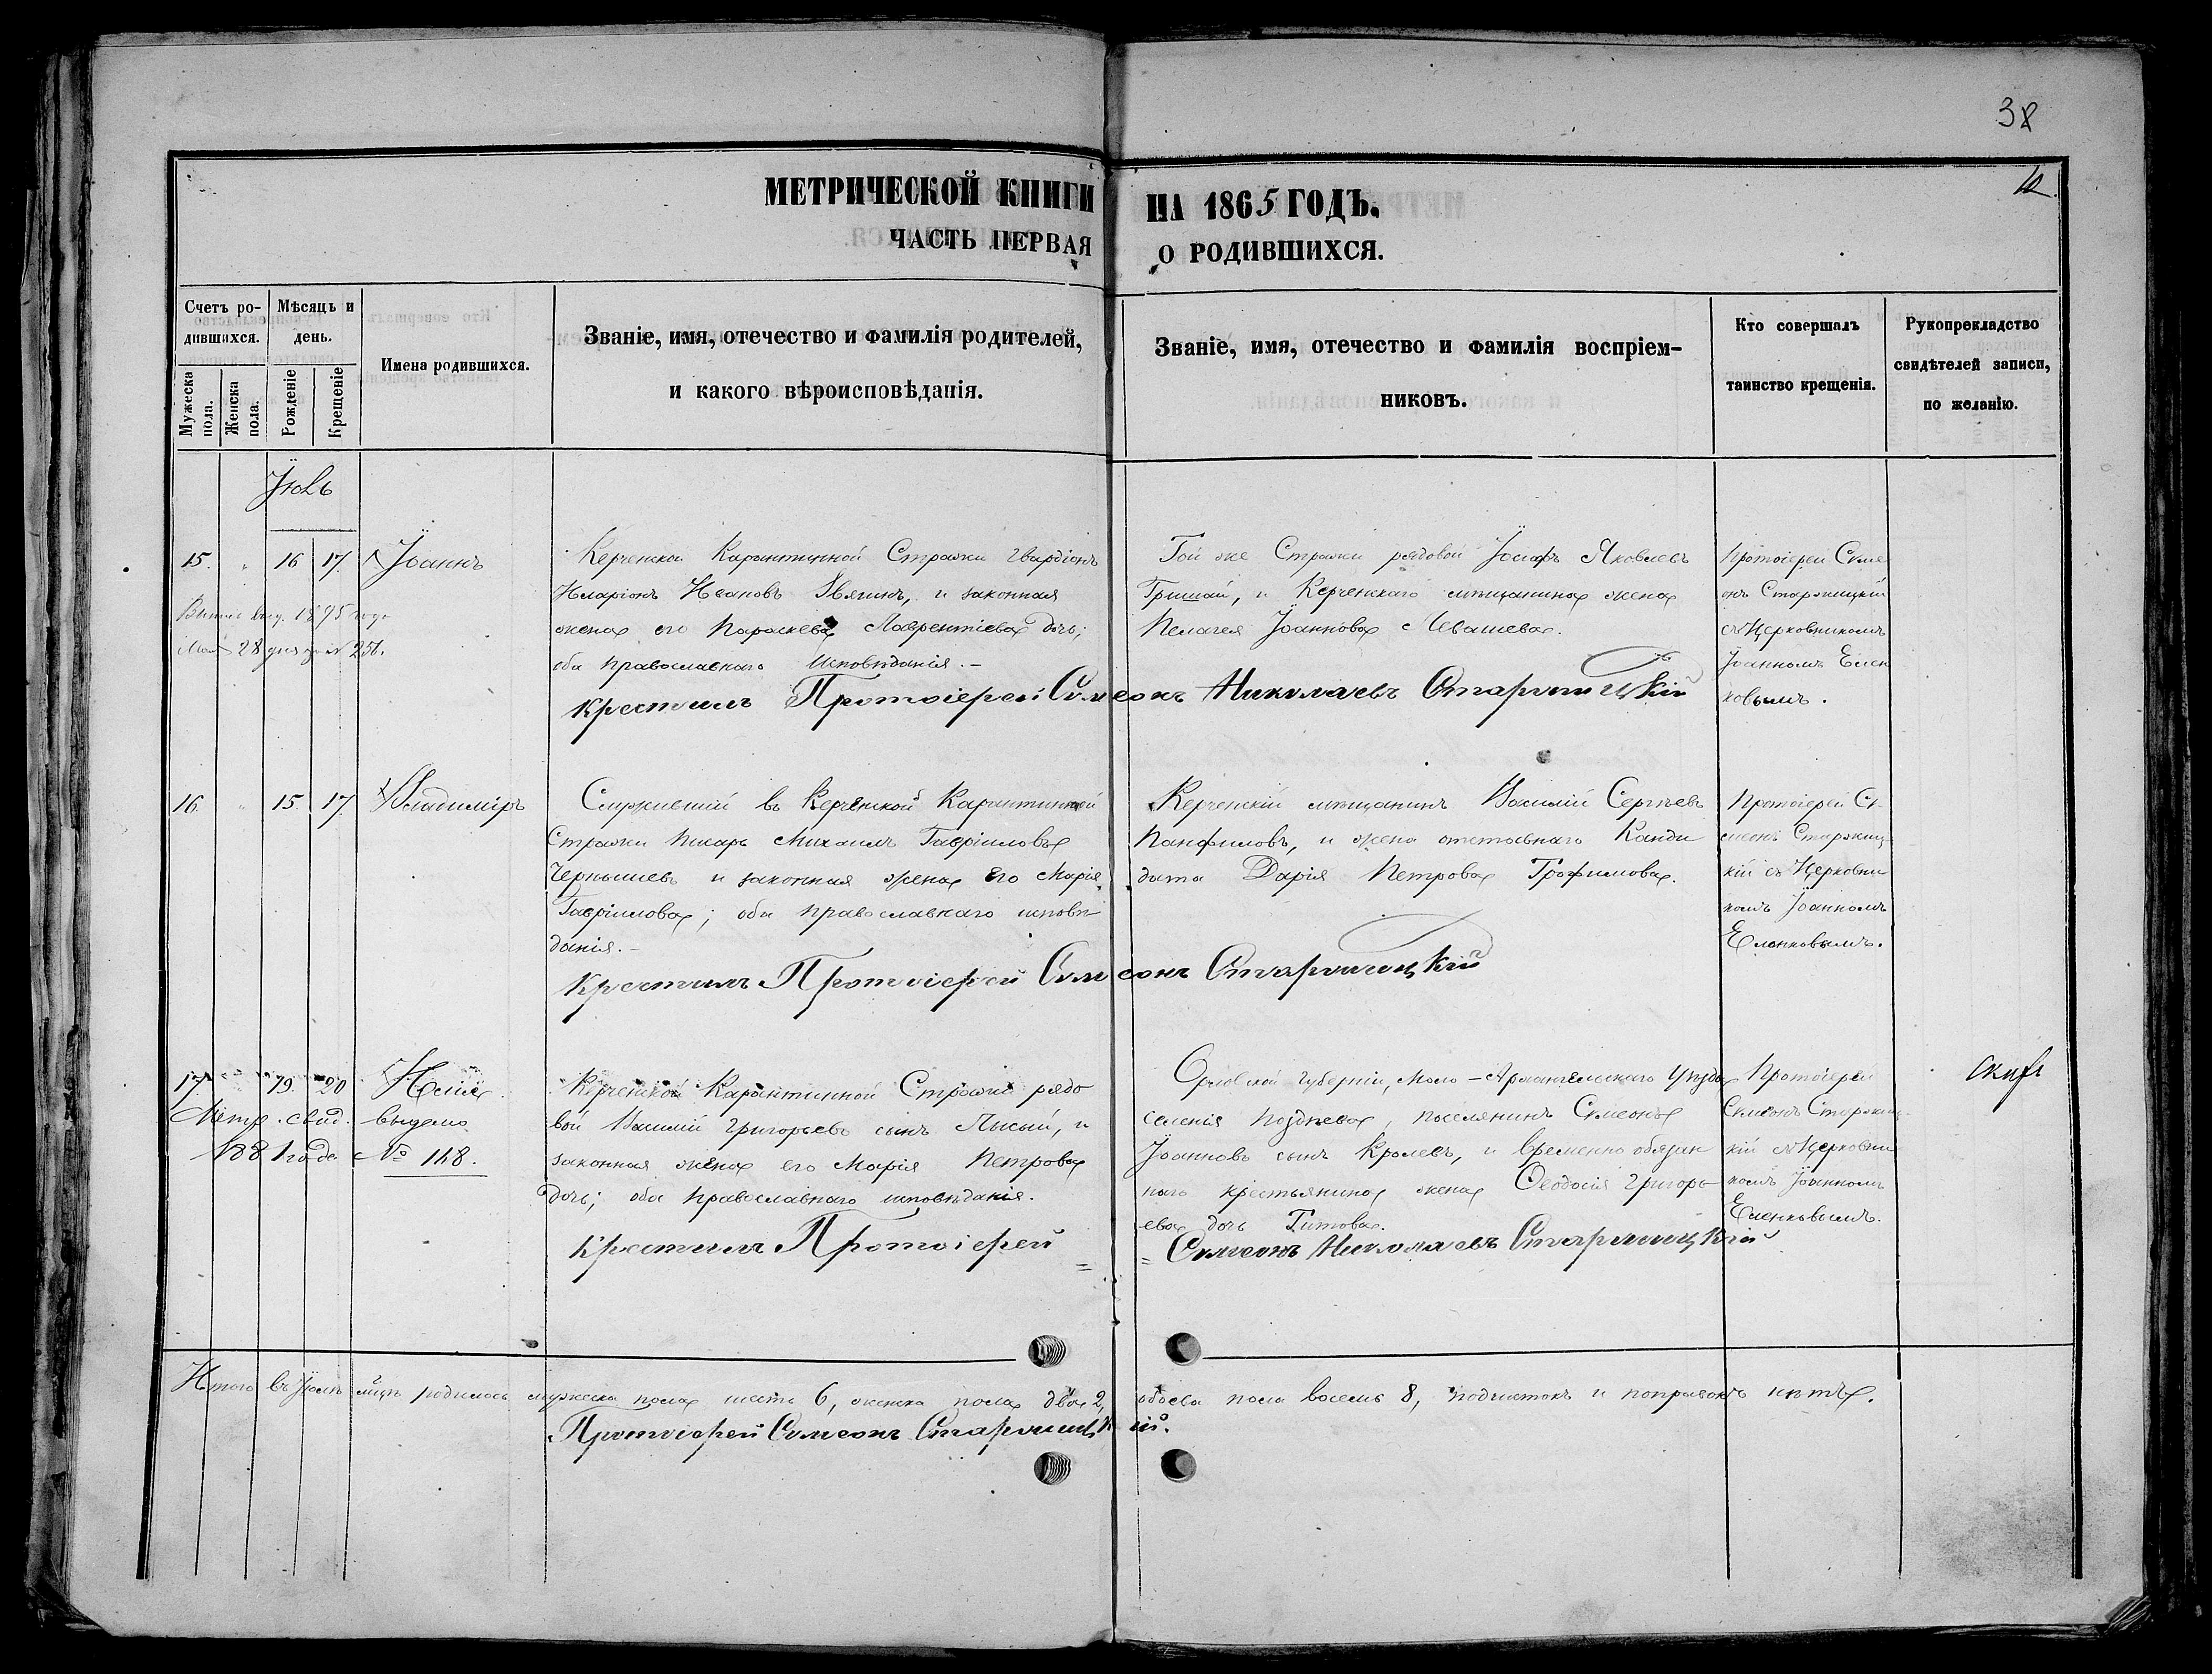 38
12
МЕТРИЧЕСКОЙ КНИГИ НА 1865 ГОДЪ.
ЧАСТЬ ПЕРВАЯ О РОДИВШИХСЯ.
Счетъ ро-
дившихся.
Мужеска
пола.
Женска
пола.
Мѣсяцъ и
день.
Рожденіе
Крещеніе
Имена родившихся.
Званіе, имя, отечество и фамилія родителей,
и какого вѣроисповѣданія.
Званіе, имя, отечество и фамилія воспріем-
никовъ.
Кто совершалъ
таинство крещенія.
Рукоприкладство
свидѣтелей записи,
по желанію.
Іюль
15. " 16 17 Іоаннъ
1895 года
28 дня № 251.
Керченской Карантинной Стражи Гвардіонъ
Иларіонъ Ивановъ Звягинъ, и законная
жена его Параскева Лаврентіева дочь;
оба православнаго исповѣданія.-
Той же Стражи рядовой Іосифъ Яковлевъ
Гришай, и Керченскаго мѣщанина жена
Пелагея Іоаннова Чевашева.
Протоіерей Симе
онъ Старжицкій
съ Церковникомъ
Іоанномъ Елен
ковымъ.
Крестилъ Протоіерей Симеонъ Николаевъ Старжицкій
16. " 15 17 Владиміръ
Служившій въ Керченской Карантинной
Стражи Писарь Михаилъ Гавріиловъ
Чернышевъ и законная жена его Марія
Гавріилова; оба православнаго исповѣ
данія.-
Керченскій мѣщанинъ Василій Сергѣевъ
Панфиловъ, и жена отставнаго Канди
дата Дарія Петрова Трофимова.
Протоіерей Си-
меонъ Старжиц
кій съ Церковни
комъ Іоанномъ
Еленковымъ.
Крестилъ Протоіерей Симеонъ Старжицкій
17. " 19. 20 Илія
Метр. свид. выдано
1881 года № 148.
Керченской Карантинной Стражи рядо
вой Василій Григорьевъ сынъ Лысый, и
законная жена его Марія Петрова
дочь; оба православнаго исповѣданія.
Орловской губерніи, Мало-Архангельскаго Уѣзда
селенія Позднева, поселянинъ Симеонъ
Іоанновъ сынъ Кролевъ, и временно обязан
наго крестьянина жена Ѳеодосія Григорь
ева дочь Титова.
Протоіерей
Симеонъ Старжиц-
кій съ Церковни
комъ Іоанномъ
Еленковымъ.
Крестилъ Протоіерей = = Симеонъ Николаевъ Старжицкій
Итого въ Іюлѣ мцѣ родилось мужеска пола шесть 6, женска пола два 2, обоего пола восемь 8, подчистокъ и поправокъ нѣтъ.
Протоіерей Симеонъ Старжицкій.